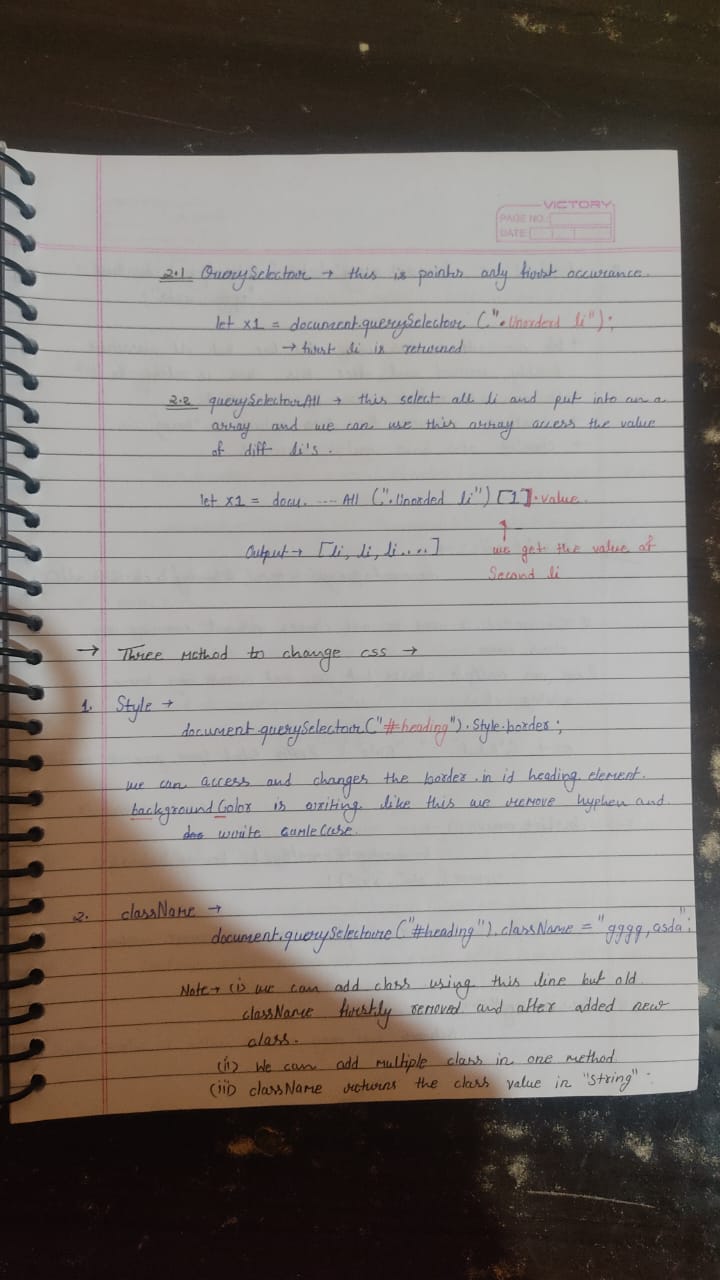 VICTORY
PAGE NO.:
DATE:
2.1 QuerySelector → this is points only first occurance.
let x1 = document.querySelector (".Unorderd li");
→ first li is returned
2.2 querySelectorAll → this select all li and put into an a
array and we can use this array access the value
of diff li's.
let x1 = docu. ---- All (".Unorded li") [1].value.
Output → [li, li, li....] we get the value of
Second li
→ Three Method to change css →
1. Style →
document.querySelector("#heading").Style.border;
we can access and changes the border in id heading element.
background Color is writing like this we remove hyphen and
write CamleCase.
2. className →
document.querySelectore("#heading").className = "gggg, asda";
Note → (i) we can add class using this line but old
className firstly removed and after added new
class.
(ii) We can add multiple class in one method
(iii) className returns the class value in "string".